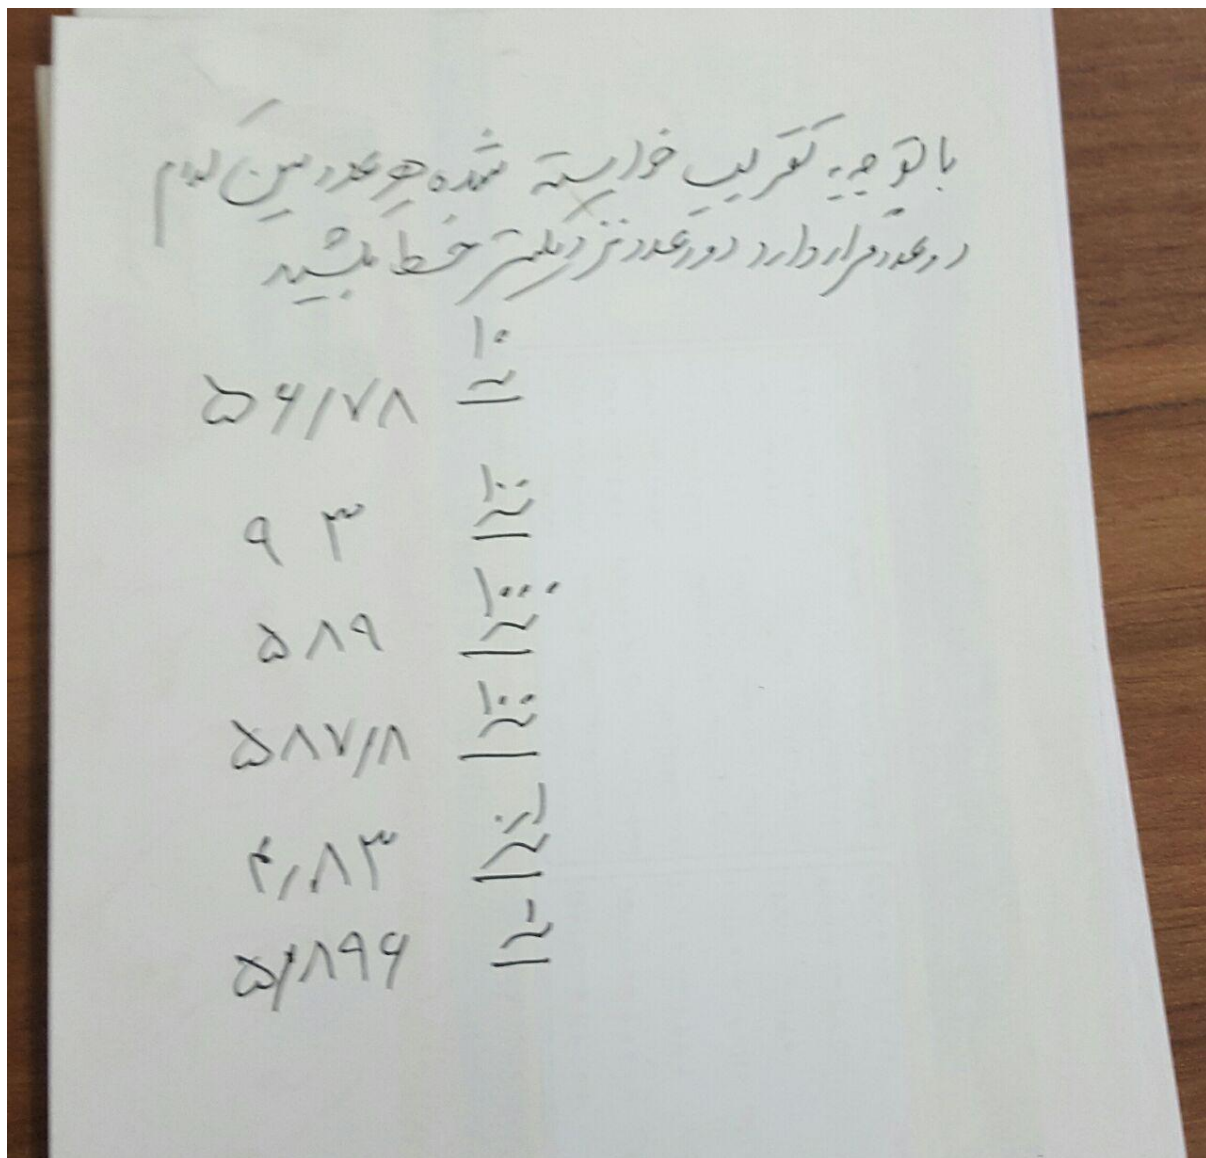 با توجه به تقریب خواسته شده هر عدد بین کدام
دو عدد قرار دارد دور عدد نزدیکتر خط بکشید
۵۶/۷۸ ≃ ۱۰
۹۳ ≃ ۱۰۰
۵۸۹ ≃ ۱۰۰۰
۵۸۷/۸ ≃ ۱۰۰
۴/۸۳ ≃
۵/۸۹۶ ≃ ۱